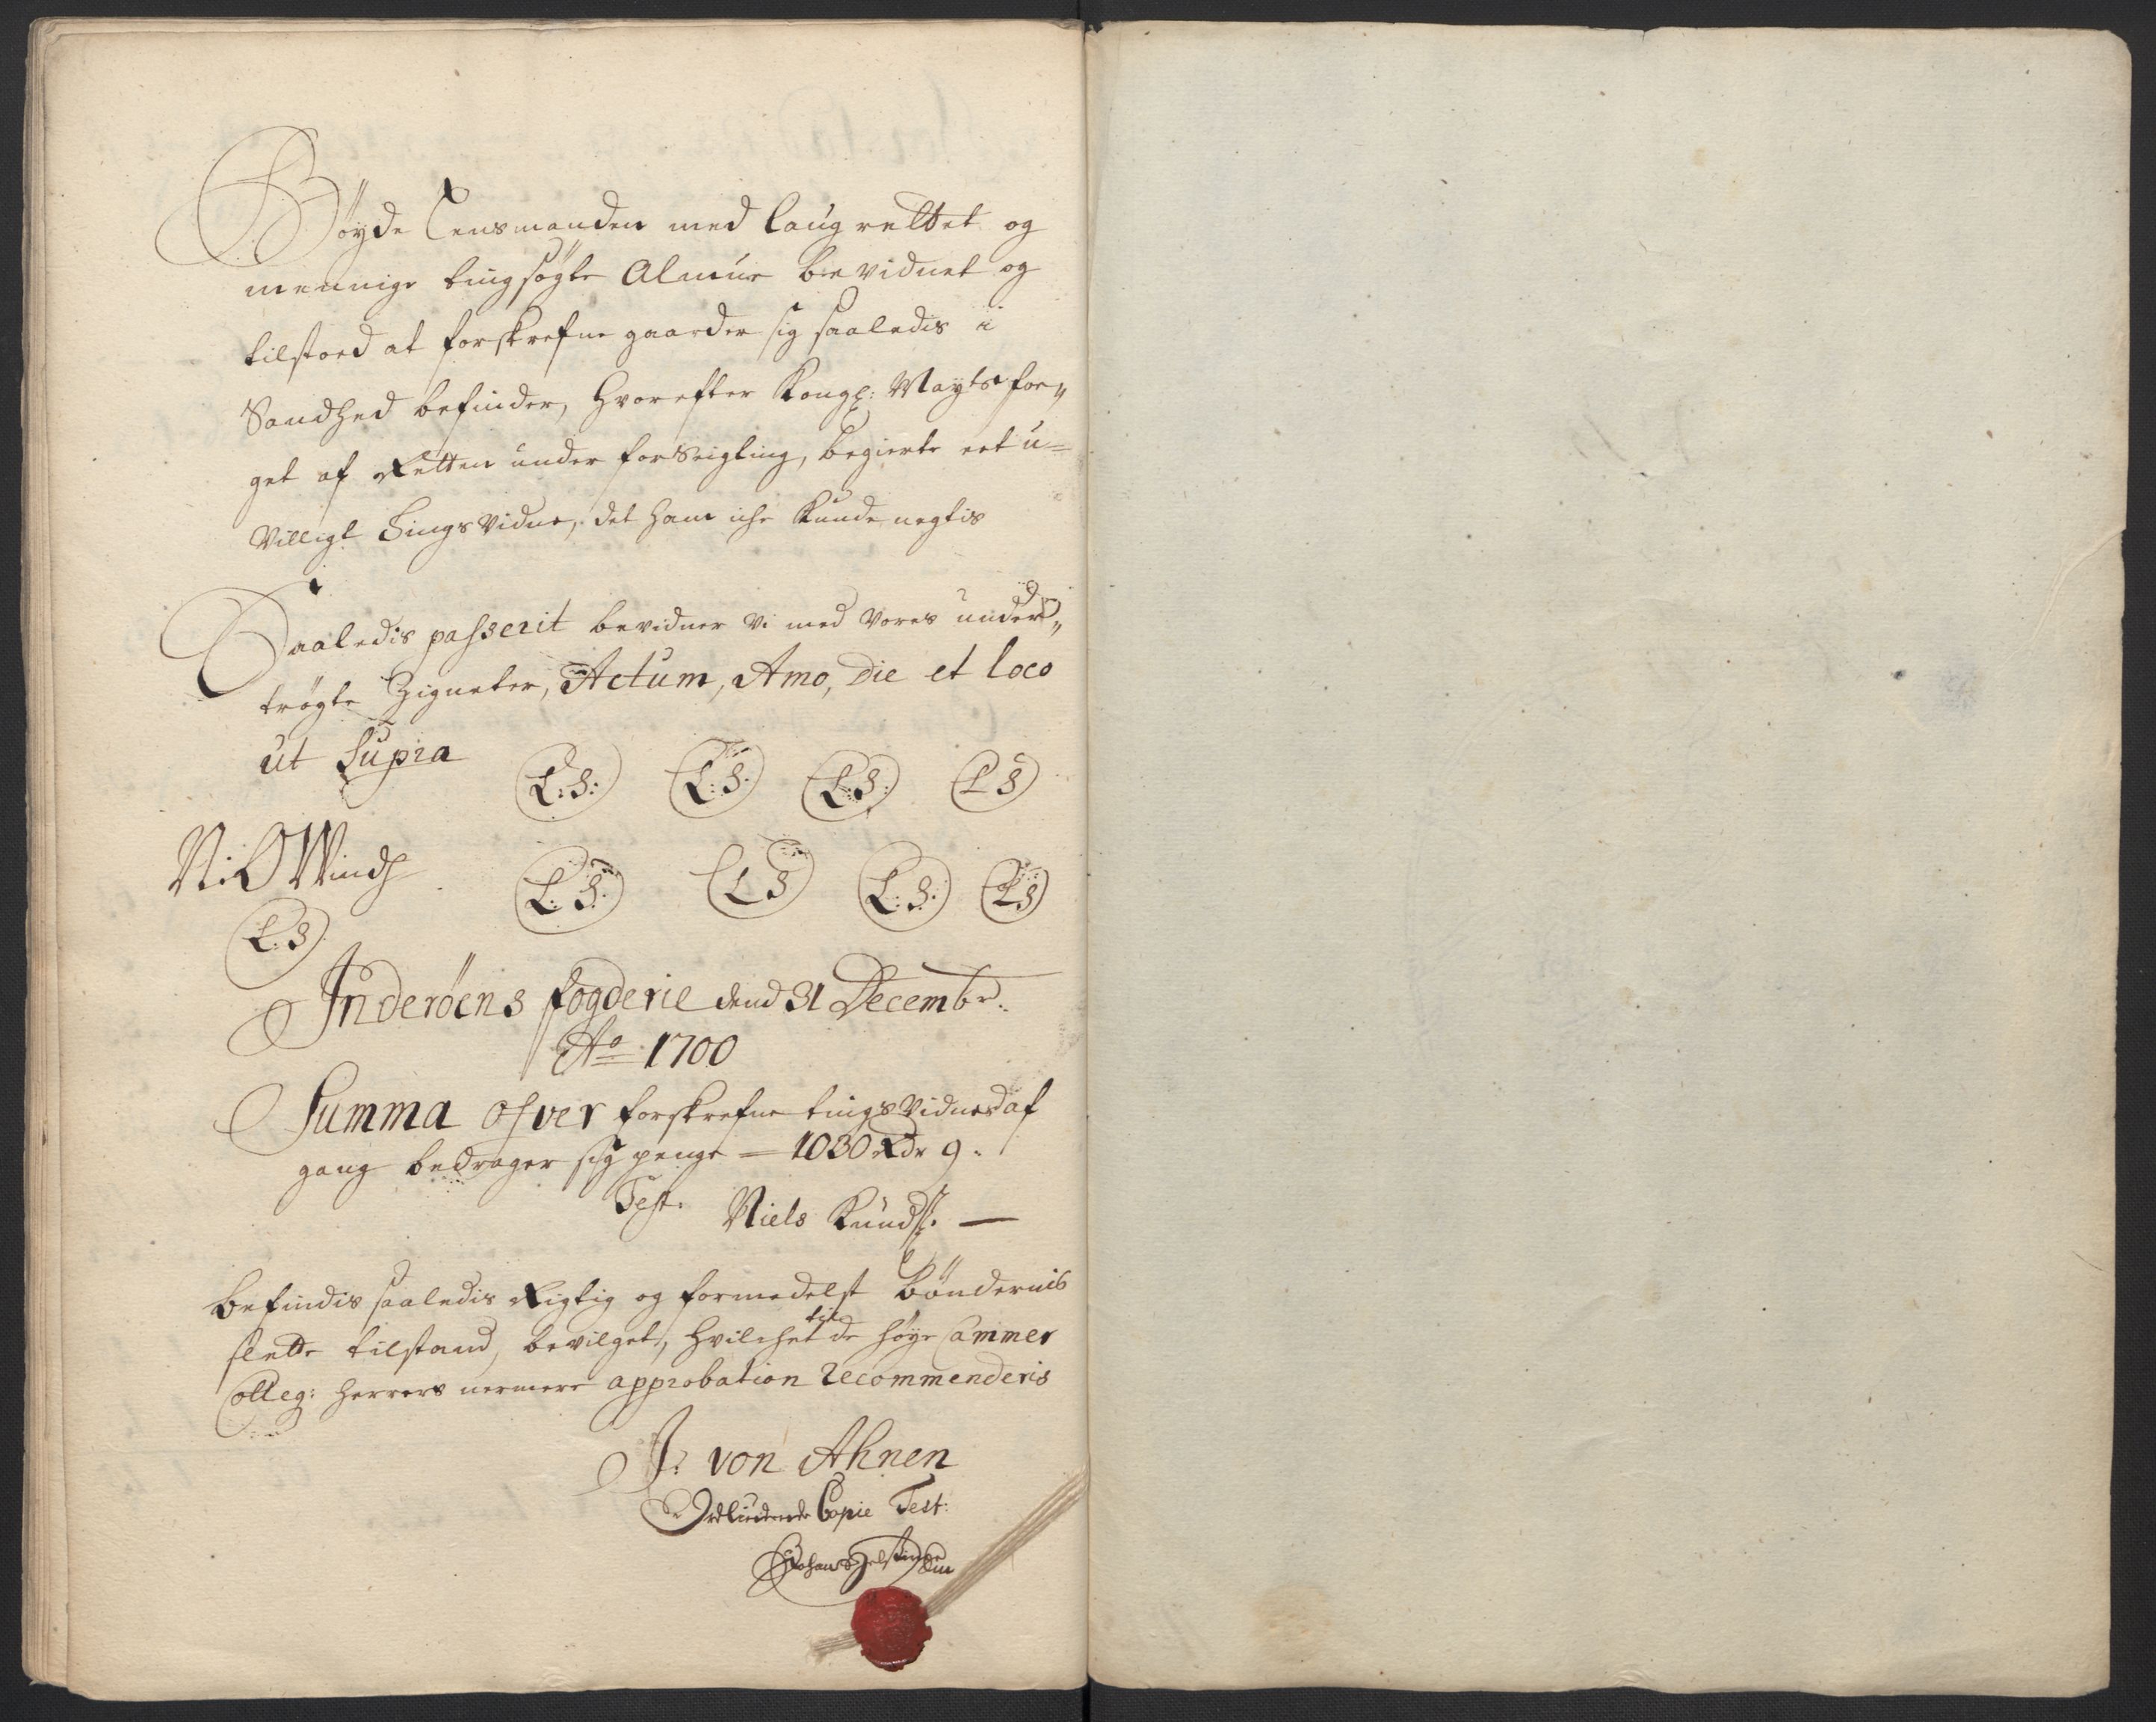 Böyde Lensmanden med laugrettet og
mennige tingsögte Almue bevidnet og
tilstoed at forskrefne gaarder sig saaledis i
Sandhed befinder, hvorefter Kongl: Mayts fo„
get af Retten under forseigling, begierte eet u=
villigt Tings Vidne, det ham iche kunde negtis
Saaledis passerit bevidner vi med vores under„
trögte Zigneter, Actum, Anno, Die et loco
ut Supra
L:S: L:S: L:S: L S
N:O Windh
L:S: L S L:S: L S
L:S
Inderöens fogderie dend 31 Decembr:
Ao 1700
Summa ofver forskrefne tings Vidnes af
gang bedrager sig penge = 1030 Rdr 9:
Test: Niels Knuds:
Befindis saaledis Rigtig og formedelst Böndernis
slette tilstand, bevilget, hvilchet til de höye Cammer
Colleg: herrers nermere approbation recommenderis
J: von Ahnen
Ordliudende Copie Test: